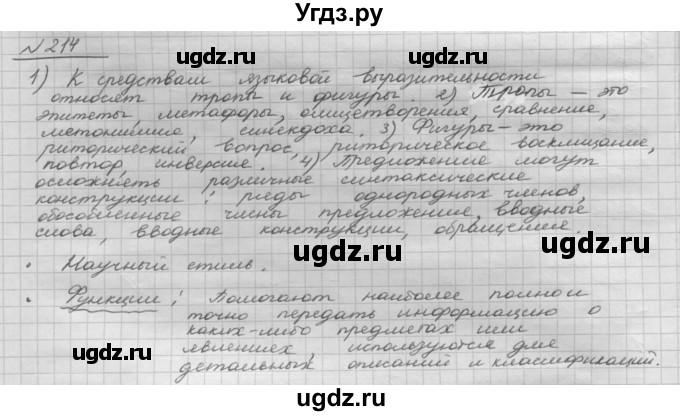 Угдз.ру
№214
1) К средствам языковой выразительности
относят тропы и фигуры. 2) Тропы – это
эпитеты, метафоры, олицетворения, сравнение,
метонимия, синекдоха. 3) Фигуры – это
риторический вопрос, риторическое восклицание,
повтор, инверсия. 4) Предложение могут
осложнять различные синтаксические
конструкции: ряды однородных членов,
обособленные члены предложения, вводные
слова, вводные конструкции, обращения.
• Научный стиль.
• Функции: Помогают наиболее полно и
точно передать информацию о
каких-либо предметах или
явлениях, используются для
детальных описаний и классификаций.
ugdz.ru ugdz.ru ugdz.ru
ugdz.ru ugdz.ru
ugdz.ru ugdz.ru
ugdz.ru
ugdz.ru ugdz.ru
ugdz.ru